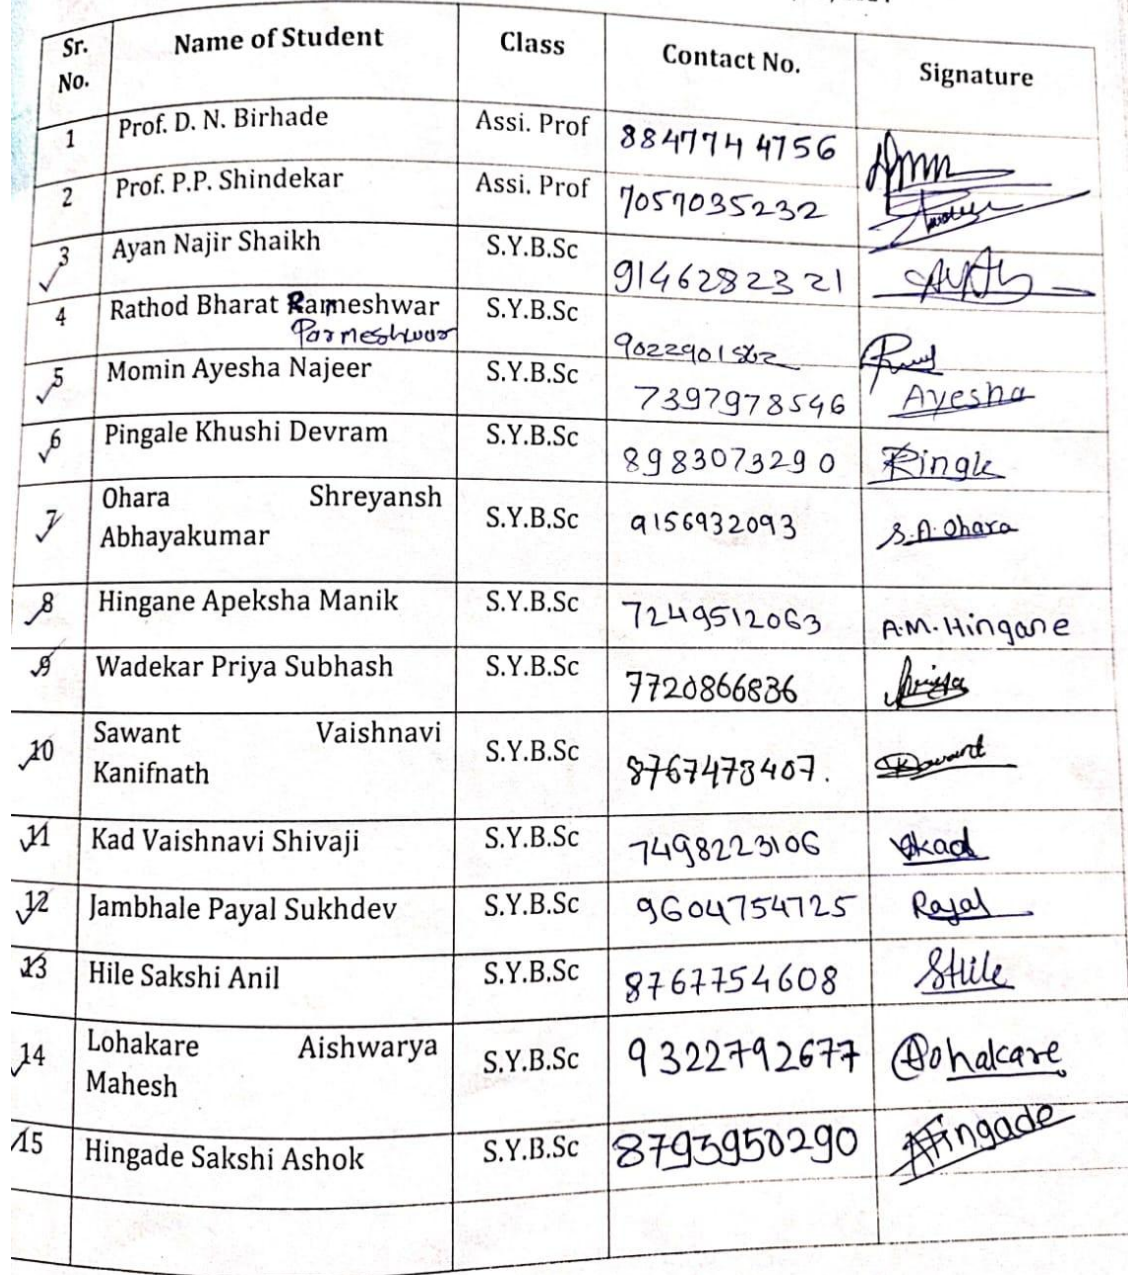 Sr. No. Name of Student Class Contact No. Signature
1 Prof. D. N. Birhade Assi. Prof 8847744756
2 Prof. P.P. Shindekar Assi. Prof 7057035232
3 Ayan Najir Shaikh S.Y.B.Sc 9146282321
4 Rathod Bharat Rameshwar S.Y.B.Sc
Parmeshwar
5 Momin Ayesha Najeer S.Y.B.Sc 7397978546 Ayesha
6 Pingale Khushi Devram S.Y.B.Sc 8983073290 Pingle
7 Ohara Shreyansh S.Y.B.Sc 9156932093 S.A.Ohara
Abhayakumar
8 Hingane Apeksha Manik S.Y.B.Sc 7249512063 A.M.Hingane
9 Wadekar Priya Subhash S.Y.B.Sc 7720866836
10 Sawant Vaishnavi S.Y.B.Sc 8767473407.
Kanifnath
11 Kad Vaishnavi Shivaji S.Y.B.Sc 7498223106 Vkad
12 Jambhale Payal Sukhdev S.Y.B.Sc 9604754725
13 Hile Sakshi Anil S.Y.B.Sc 8767754608 SHile
14 Lohakare Aishwarya S.Y.B.Sc 9322792677
Mahesh
15 Hingade Sakshi Ashok S.Y.B.Sc 8793950290 Hingade